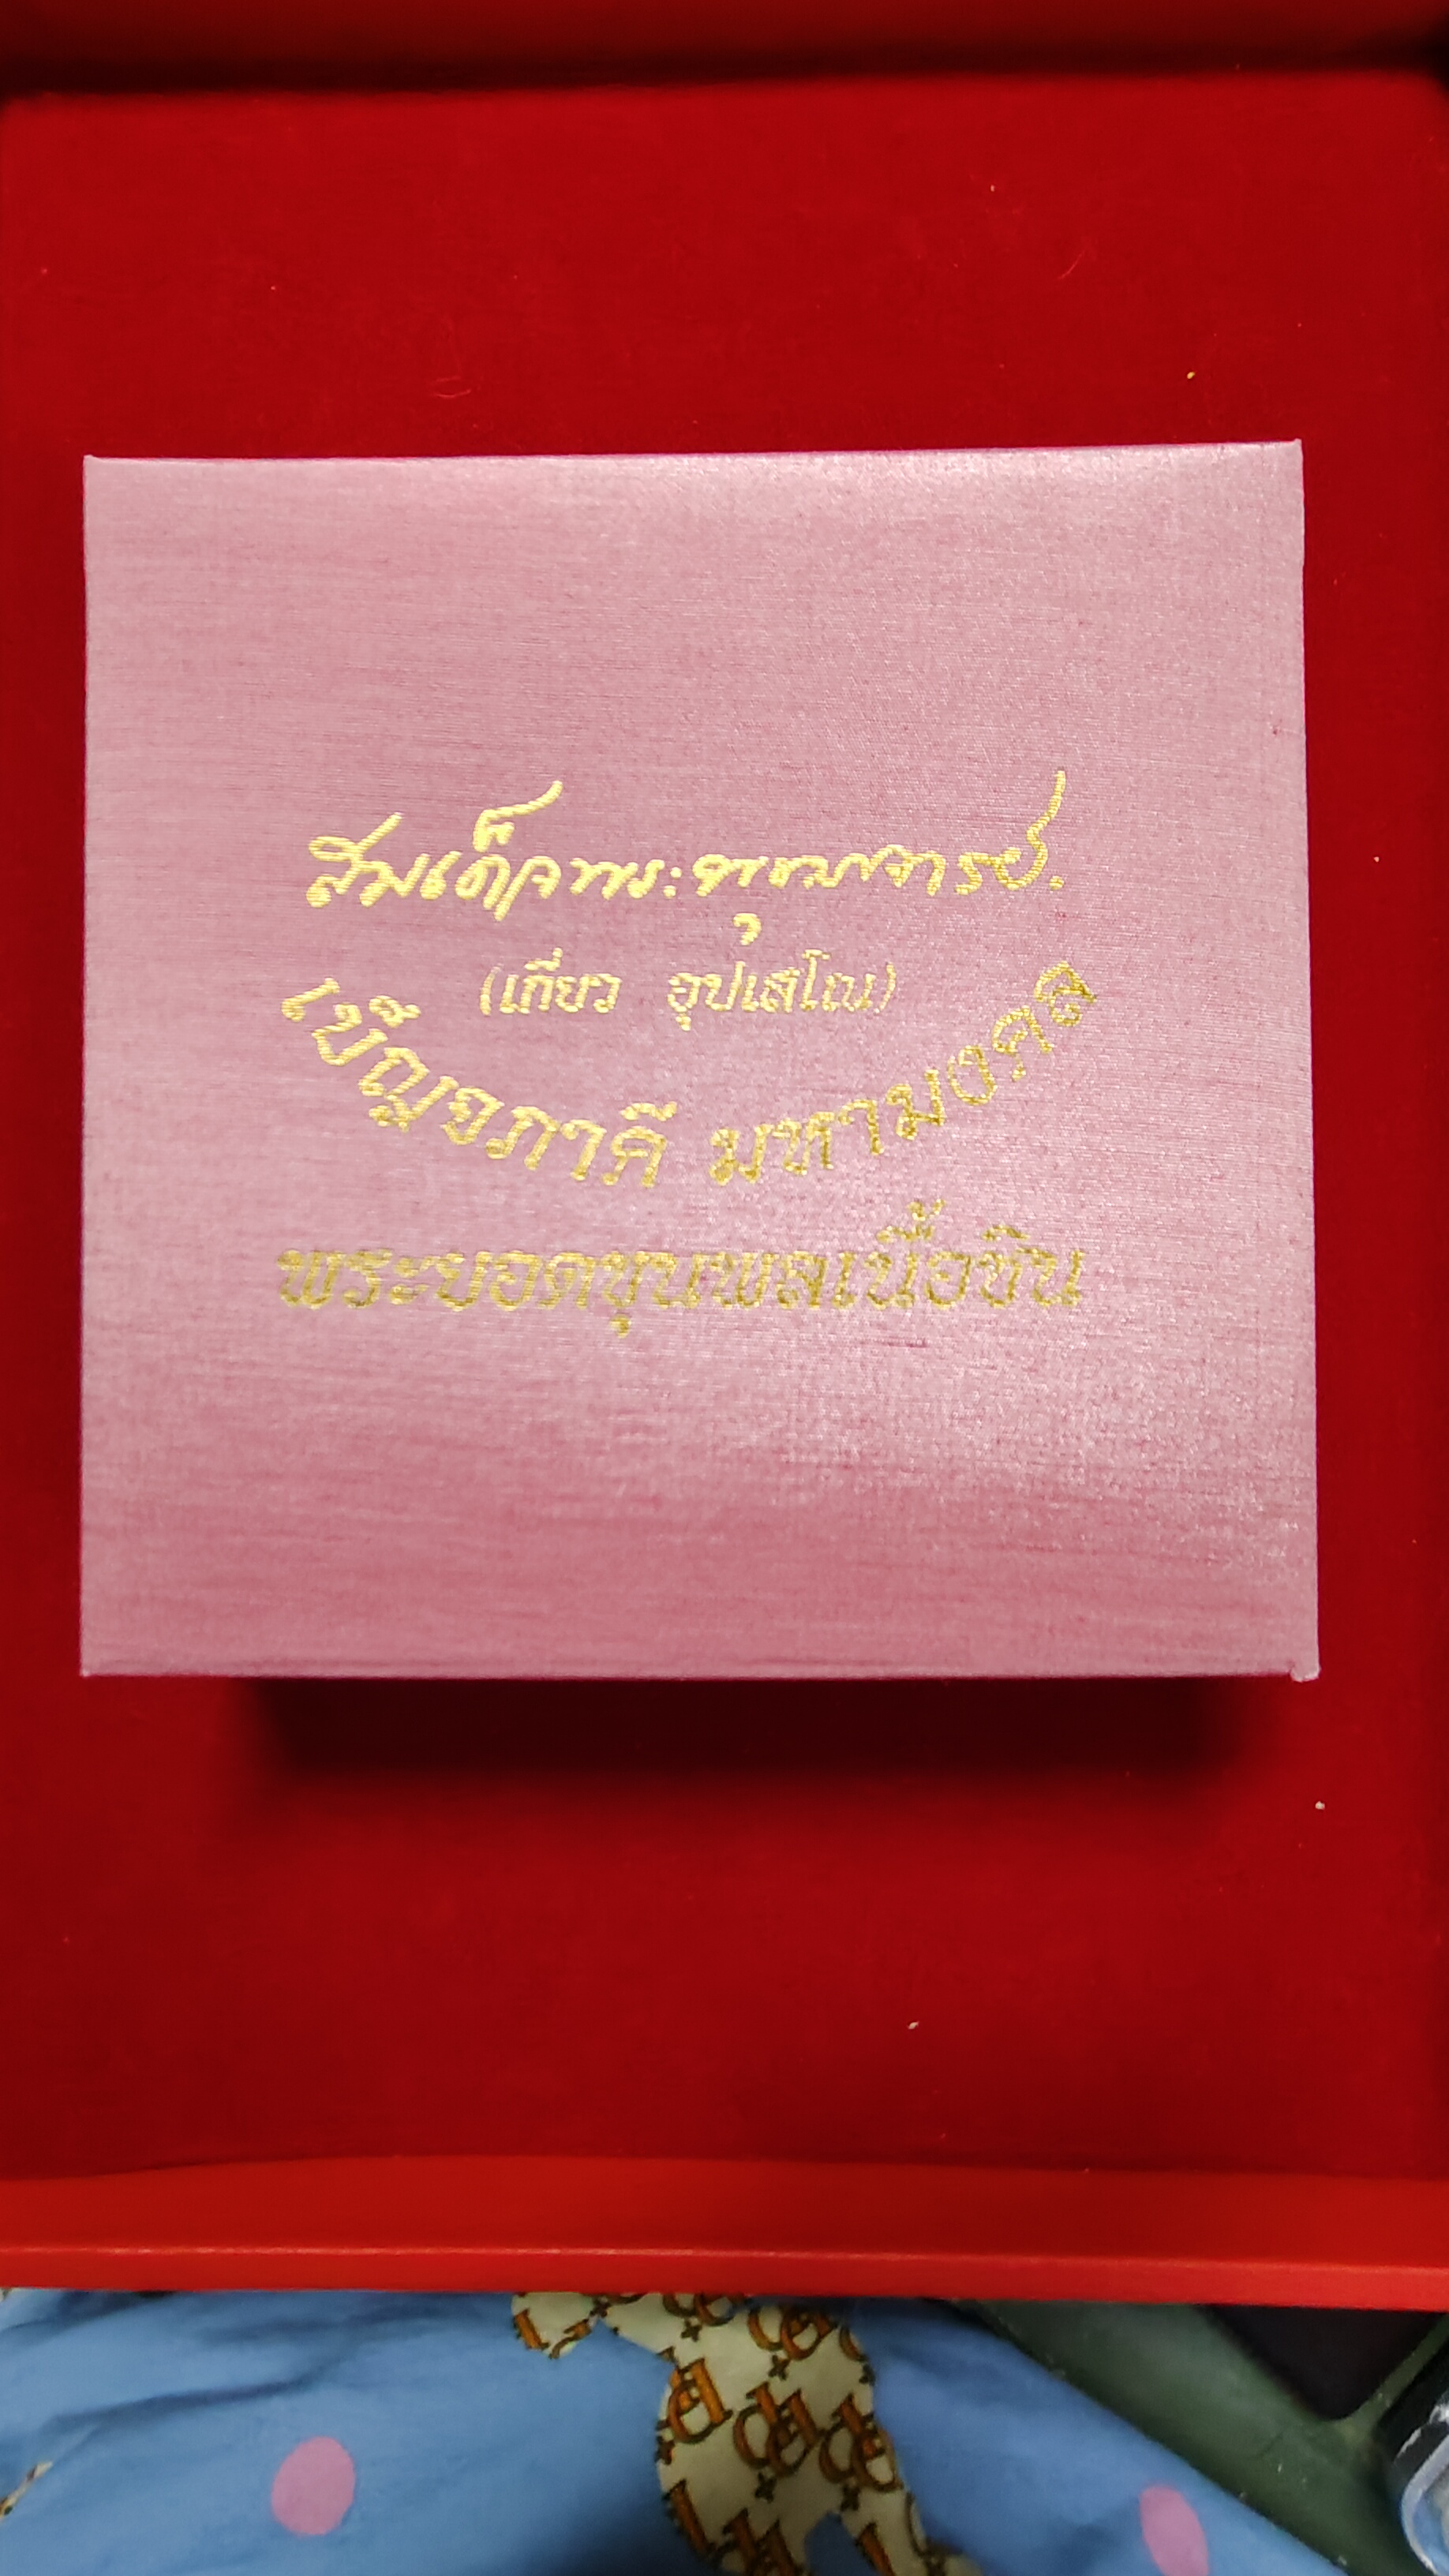 สมเด็จพระพุฒาจารย์.
(เกี่ยว อุปเสโณ)
เบ็ญจภาคี มหามงคล
พระยอดขุนพลเนื้อชิน